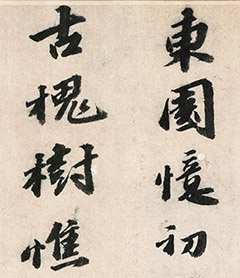 東園憶初
古槐樹憔